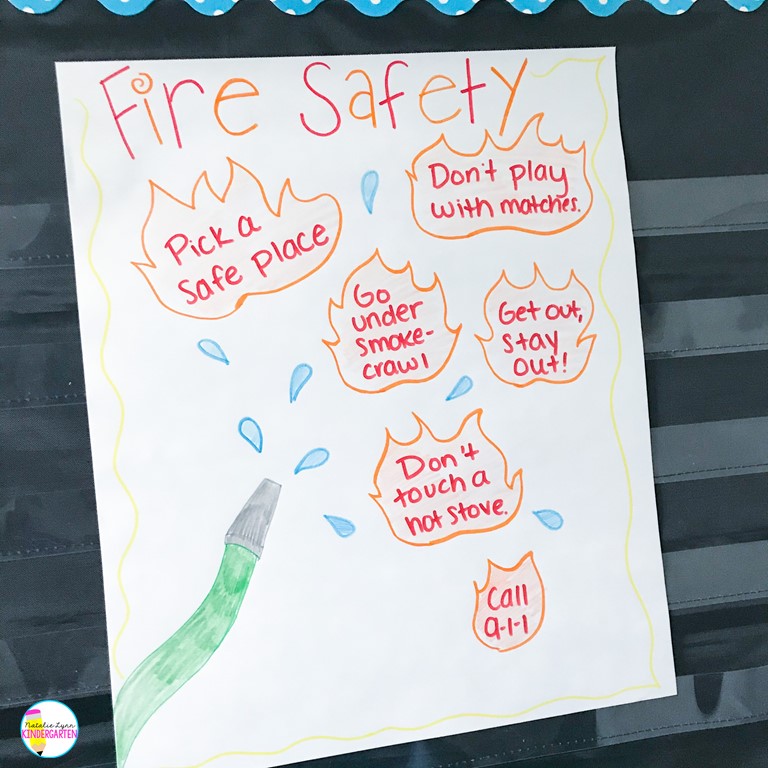 Fire Safety
Pick a
safe place
Don't play
with matches.
Go
under
smoke-
crawl
Get out,
stay
out!
Don't
touch a
hot stove.
Call
9-1-1
Natalie Lynn
KINDERGARTEN